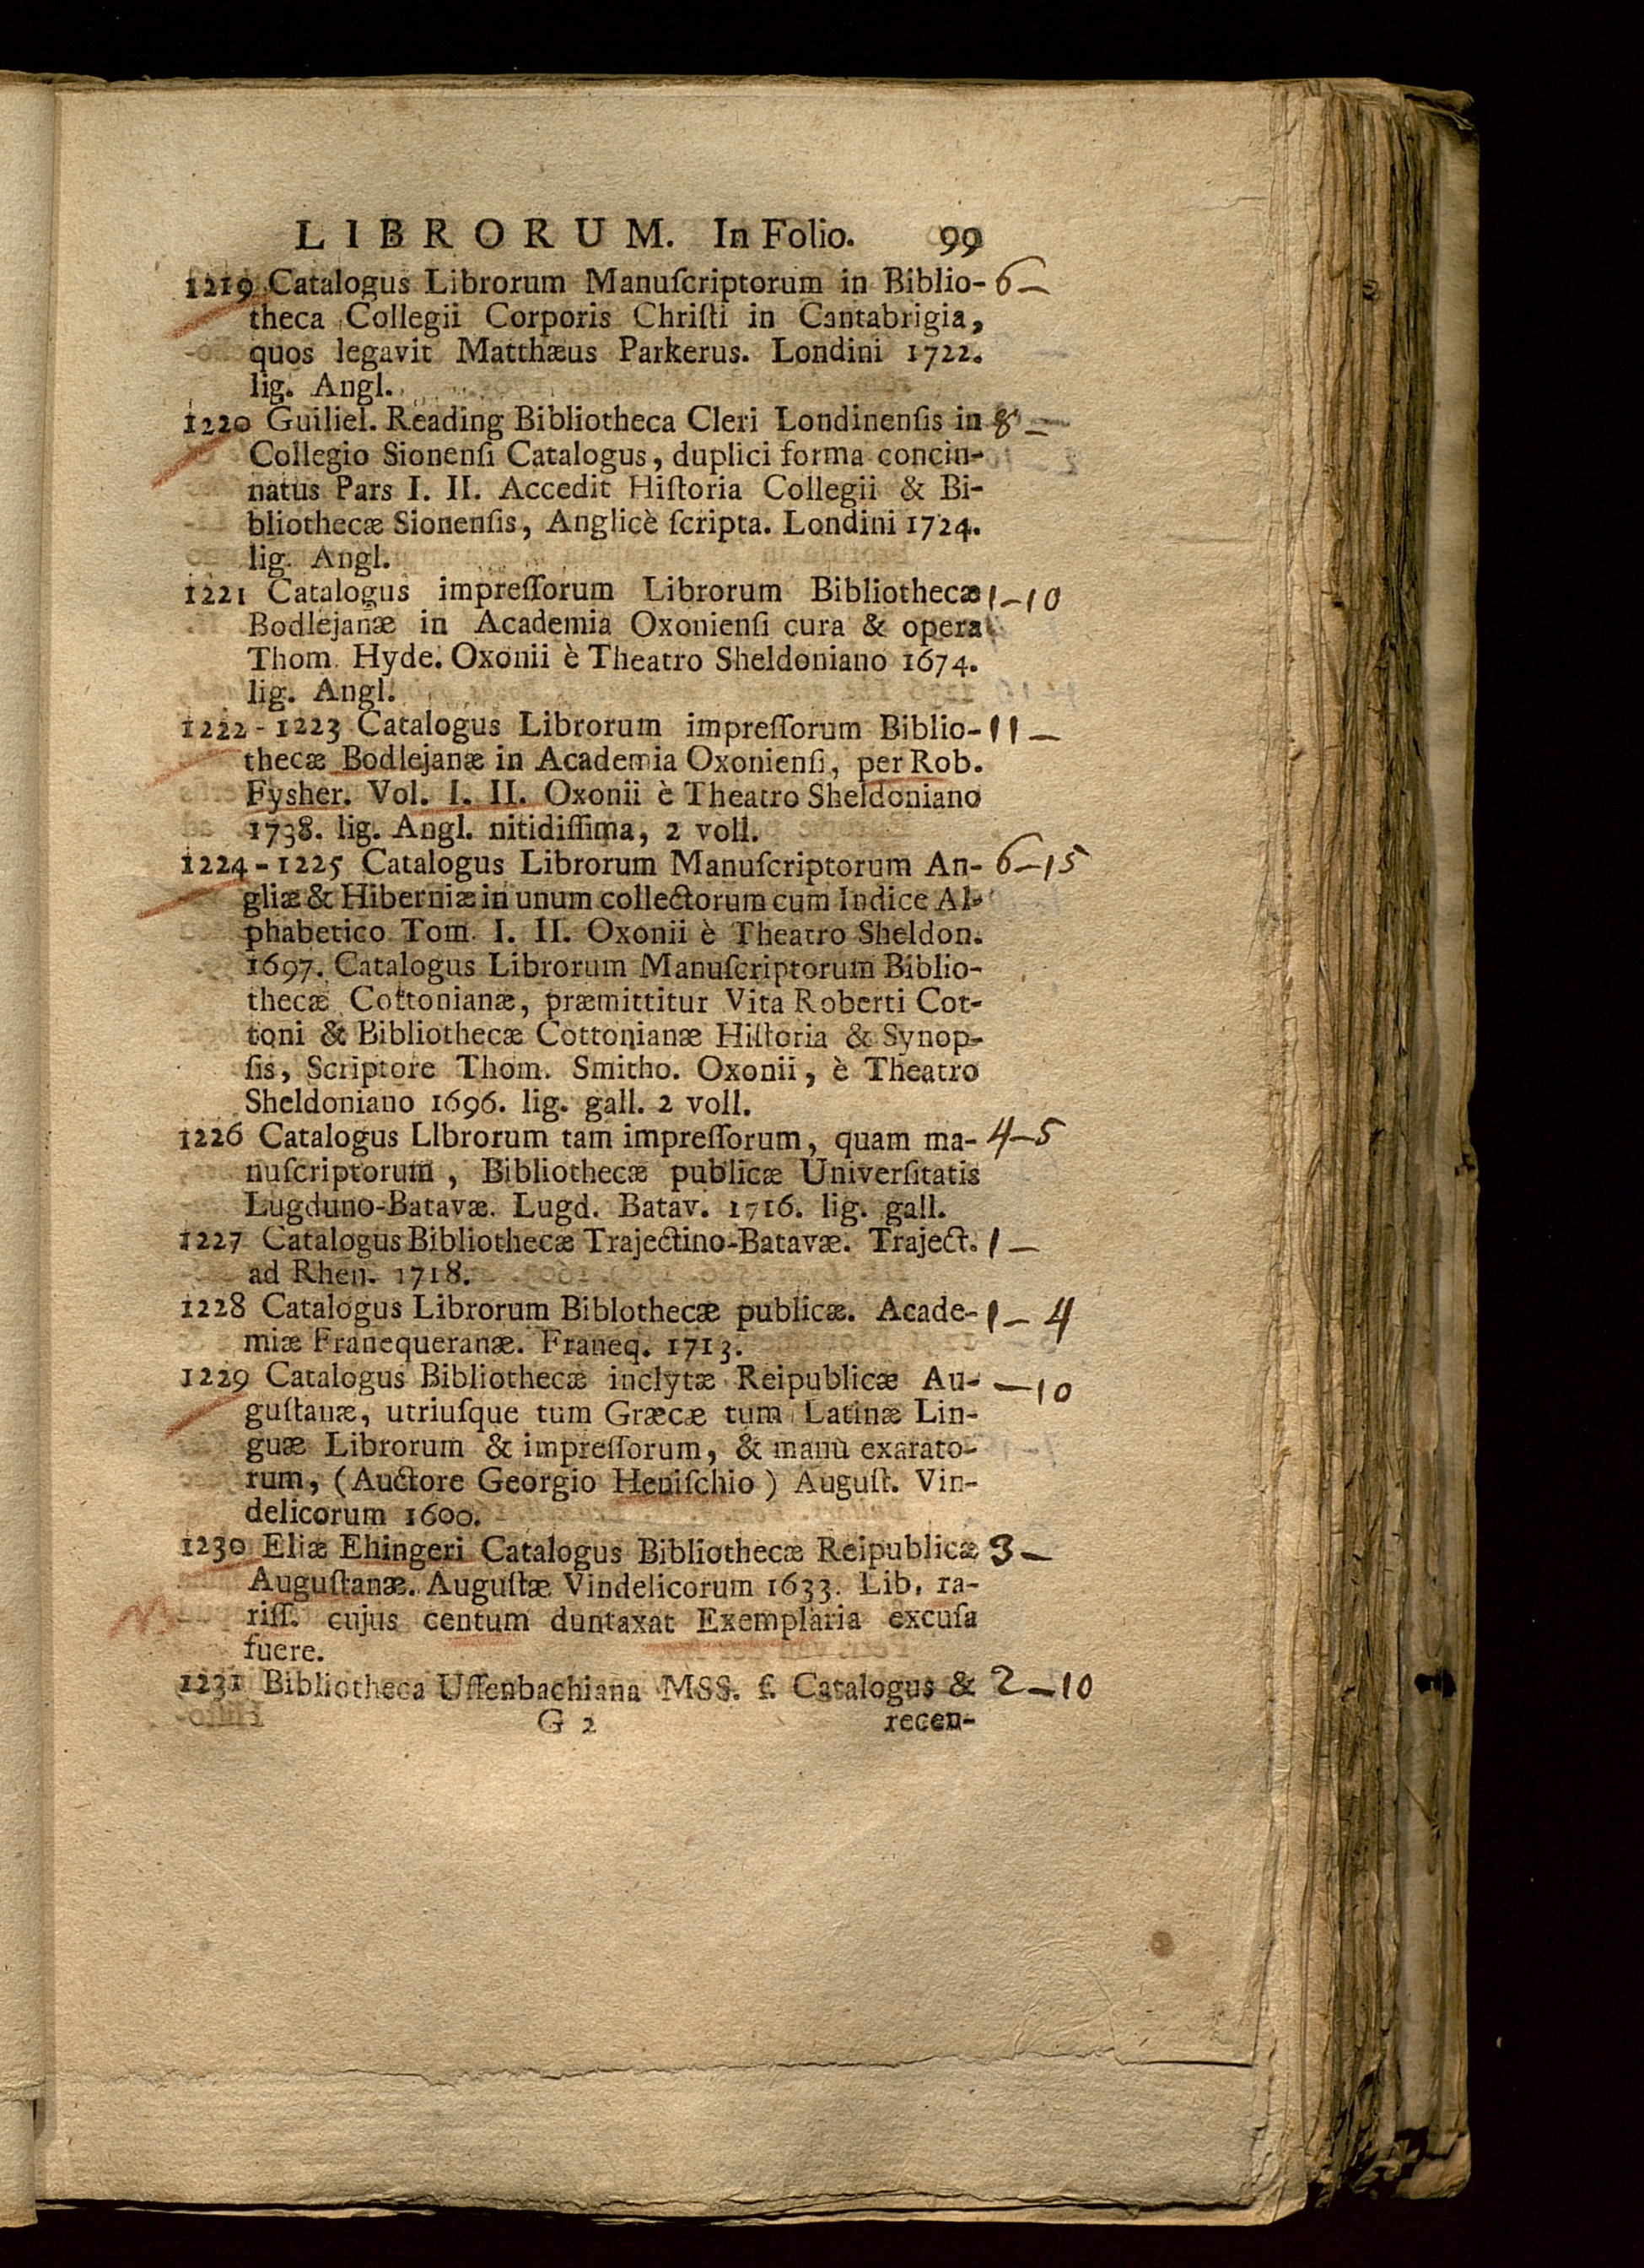 LIBRORUM. In Folio. 99
1219 Catalogus Librorum Manuſcriptorum in Biblio- 6 —
theca Collegii Corporis Chriſti in Cantabrigia,
quos legavit Matthæus Parkerus. Londini 1722.
lig. Angl.
1220 Guiliel. Reading Bibliotheca Cleri Londinenſis in 8 —
Collegio Sionenſi Catalogus, duplici forma concin-
natus Pars I. II. Accedit Hiſtoria Collegii & Bi-
bliothecæ Sionenſis, Anglicè ſcripta. Londini 1724.
lig. Angl.
1221 Catalogus impreſſorum Librorum Bibliothecæ 1 — 10
Bodlejanæ in Academia Oxonienſi cura & opera
Thom. Hyde. Oxonii è Theatro Sheldoniano 1674.
lig. Angl.
1222 - 1223 Catalogus Librorum impreſſorum Biblio- 11 —
thecæ Bodlejanæ in Academia Oxonienſi, per Rob.
Fysher. Vol. I. II. Oxonii è Theatro Sheldoniano
1738. lig. Angl. nitidiſſima, 2 voll.
1224 - 1225 Catalogus Librorum Manuſcriptorum An- 6 — 15
gliæ & Hiberniæ in unum collectorum cum Indice Al-
phabetico Tom. I. II. Oxonii è Theatro Sheldon.
1697. Catalogus Librorum Manuſcriptorum Biblio-
thecæ Cottonianæ, præmittitur Vita Roberti Cot-
toni & Bibliothecæ Cottonianæ Hiſtoria & Synop-
ſis, Scriptore Thom. Smitho. Oxonii, è Theatro
Sheldoniano 1696. lig. gall. 2 voll.
1226 Catalogus LIbrorum tam impreſſorum, quam ma- 4 — 5
nuſcriptorum, Bibliothecæ publicæ Univerſitatis
Lugduno-Batavæ. Lugd. Batav. 1716. lig. gall.
1227 Catalogus Bibliothecæ Trajectino-Batavæ. Traject. 1 —
ad Rhen. 1718.
1228 Catalogus Librorum Biblothecæ publicæ. Acade- 1 — 4
miæ Franequeranæ. Franeq. 1713.
1229 Catalogus Bibliothecæ inclytæ Reipublicæ Au- — 10
guſtanæ, utriuſque tum Græcæ tum Latinæ Lin-
guæ Librorum & impreſſorum, & manù exarato-
rum, (Auctore Georgio Heniſchio) Auguſt. Vin-
delicorum 1600.
1230 Eliæ Ehingeri Catalogus Bibliothecæ Reipublicæ 3 —
Auguſtanæ. Auguſtæ Vindelicorum 1633. Lib. ra-
riſſ. cujus centum duntaxat Exemplaria excuſa
fuere.
1231 Bibliotheca Uffenbachiana MSS. ſ. Catalogus & 2 — 10
G 2 recen-